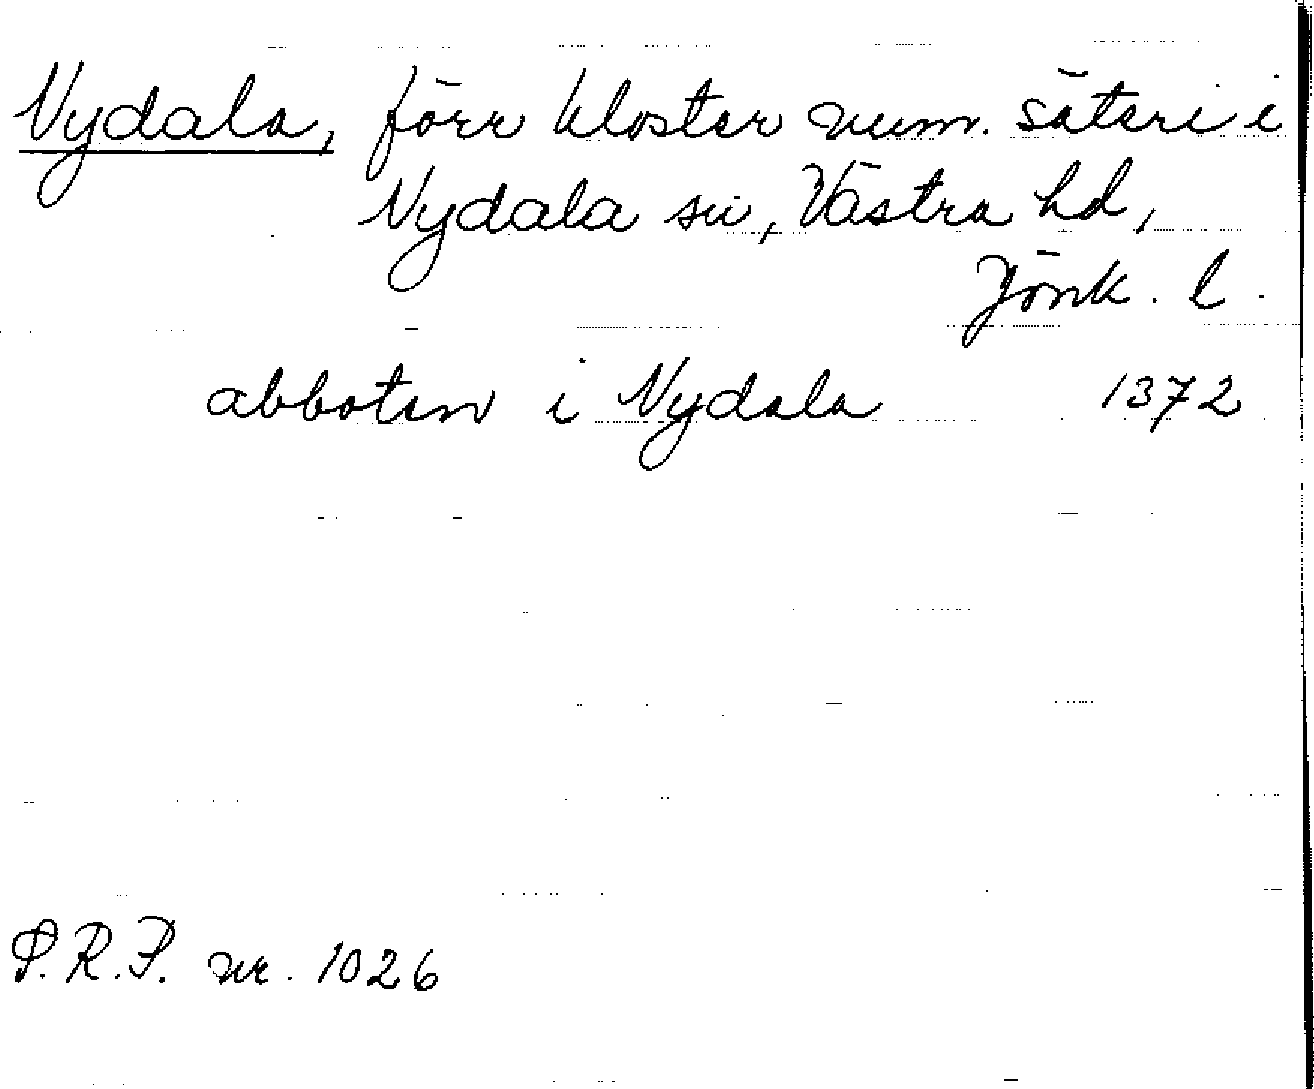 Nydala, förr kloster num. säteri i
Nydala sn, Västra hd,
Jönk. l.
abboten i Nydala 1372
P.R.P. nr. 1026